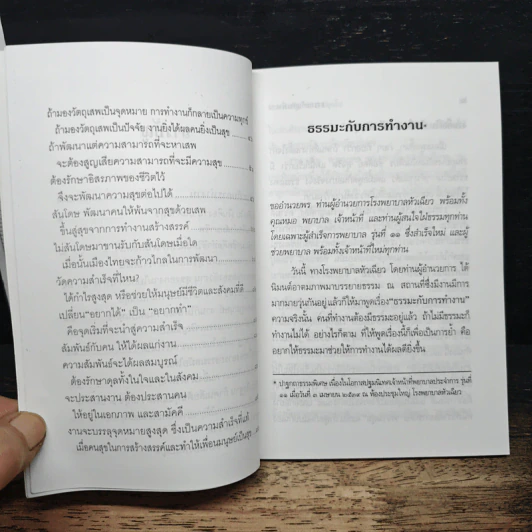 ถ้ามองวัตถุเสพเป็นจุดหมาย การทำงานก็กลายเป็นความทุกข์
ถ้ามองวัตถุเสพเป็นปัจจัย งานยิ่งได้ผลคนยิ่งเป็นสุข
ถ้าพัฒนาแต่ความสามารถที่จะหาเสพ
จะต้องสูญเสียความสามารถที่จะมีความสุข
ต้องรักษาอิสรภาพของชีวิตไว้
จึงจะพัฒนาความสุขต่อไปได้
สันโดษ พัฒนาคนให้พ้นจากสุขด้วยเสพ
ขึ้นสู่สุขจากการทำงานสร้างสรรค์
ไม่สันโดษมาขานรับกับสันโดษเมื่อใด
เมื่อนั้นเมืองไทยจะก้าวไกลในการพัฒนา
วัดความสำเร็จที่ไหน?
ได้กำไรสูงสุด หรือช่วยให้มนุษย์มีชีวิตและสังคมที่ดี
เปลี่ยน "อยากได้" เป็น "อยากทำ"
คือจุดเริ่มที่จะนำสู่ความสำเร็จ
สัมพันธ์กับคน ให้ได้ผลแก่งาน
ความสัมพันธ์จะได้ผลสมบูรณ์
ต้องรักษาดุลทั้งในใจและในสังคม
จะประสานงาน ต้องประสานคน
ให้อยู่ในเอกภาพ และสามัคคี
งานจะบรรลุจุดหมายสูงสุด ซึ่งเป็นความสำเร็จที่แท้
เมื่อคนสุขในการสร้างสรรค์และทำให้เพื่อนมนุษย์เป็นสุข
ธรรมะกับการทำงาน*
ขออำนวยพร ท่านผู้อำนวยการโรงพยาบาลหัวเฉียว พร้อมทั้ง
คุณหมอ พยาบาล เจ้าหน้าที่ และท่านผู้สนใจใฝ่ธรรมทุกท่าน
โดยเฉพาะผู้สำเร็จการพยาบาล รุ่นที่ ๑๑ ซึ่งสำเร็จใหม่ และผู้
ช่วยพยาบาล พร้อมทั้งเจ้าหน้าที่ใหม่ทุกท่าน
วันนี้ ทางโรงพยาบาลหัวเฉียว โดยท่านผู้อำนวยการ ได้
นิมนต์อาตมภาพมาบรรยายธรรม ณ สถานที่ซึ่งมีงานมีการ
มากมายวุ่นกันอยู่แล้วก็ให้มาพูดเรื่อง "ธรรมะกับการทำงาน"
ความจริงนั้น คนที่ทำงานต้องมีธรรมะอยู่แล้ว ถ้าไม่มีธรรมะก็
ทำงานไม่ได้ อย่างไรก็ตาม ที่ให้พูดเรื่องนี้ก็เพื่อเป็นการย้ำ คือ
อยากให้ธรรมะมาช่วยให้การทำงานได้ผลดียิ่งขึ้น
* ปาฐกถาธรรมพิเศษ เนื่องในโอกาสปฐมนิเทศเจ้าหน้าที่พยาบาลประจำการ รุ่นที่
๑๑ เมื่อวันที่ ๓ เมษายน ๒๕๓๔ ณ ห้องประชุมใหญ่ โรงพยาบาลหัวเฉียว